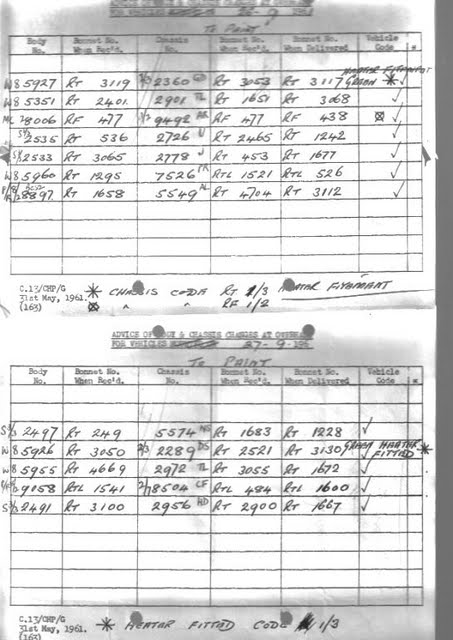 ADVICE OF BODY & CHASSIS CHANGES AT OVERHAUL
FOR VEHICLES
To PAINT
Body No. Bonnet No. When Rec'd. Chassis No. Bonnet No. When Rec'd. Bonnet No. When Delivered Vehicle Code *
HEATER FITMENT
W8 5927 RT 3119 2360 RT 3053 RT 3117 GREEN * ✓
W8 5351 RT 2401 2901 TL RT 1651 RT 3068 ✓
8006 RF 477 1/2 9492 AR RF 477 RF 438 ✓
2535 RT 536 2726 RT 2465 RT 1242 ✓
2533 RT 3065 2778 RT 453 RT 1677 ✓
W8 5960 RT 1295 7526 RTL 1521 RTL 526 ✓
8897 RT 1658 5549 AL RT 4704 RT 3112 ✓
C.13/CHP/G
31st May, 1961. * CHASSIS CODE RT 1/3 HEATER FITMENT
(163) " " RF 1/2
ADVICE OF BODY & CHASSIS CHANGES AT OVERHAUL
FOR VEHICLES 27-9-196
To PAINT
Body No. Bonnet No. When Rec'd. Chassis No. Bonnet No. When Rec'd. Bonnet No. When Delivered Vehicle Code *
2497 RT 249 5574 NS RT 1683 RT 1228 ✓
W8 5926 RT 3050 2/3 2289 DS RT 2521 RT 3130 GREEN HEATER FITTED *
W8 5955 RT 4669 2972 TL RT 3055 RT 1672 ✓
9158 RTL 1541 8504 CF RTL 484 RTL 1600 ✓
2491 RT 3100 2956 HD RT 2900 RT 1667 ✓
C.13/CHP/G
31st May, 1961. * HEATER FITTED CODE 1/3
(163)